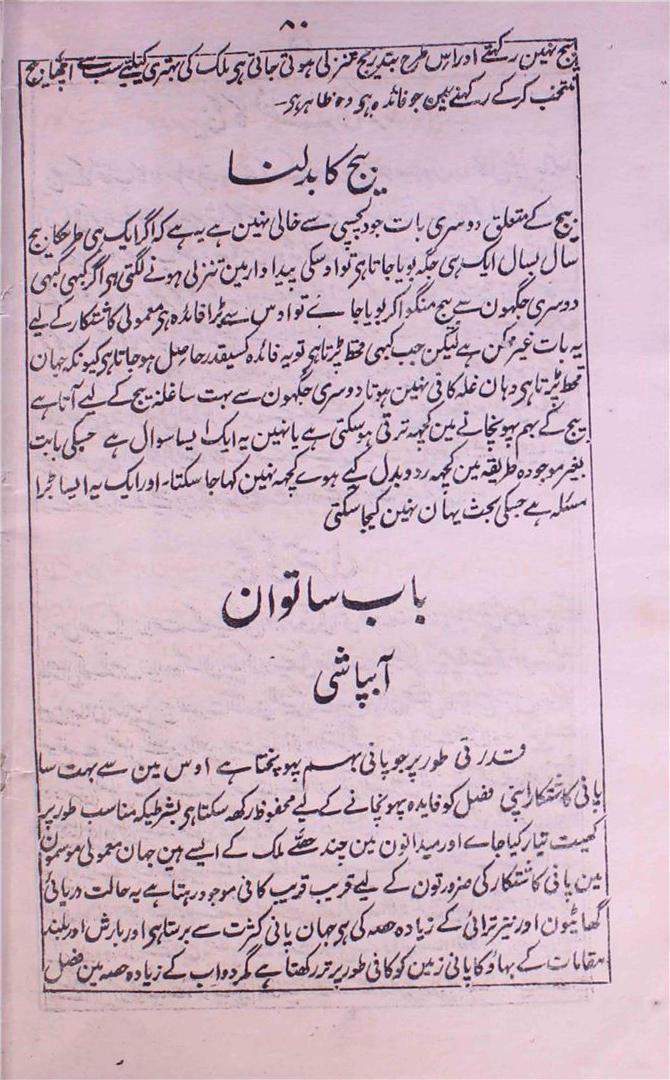 ۸۰
بیج نہین رکہتے اور اس طرح بتدریج تنزلی ہوتی جاتی ہی ملک کی بہتری کیلئے سب سے اچھا بیج
منتخب کرکے رکہنے مین جو فائدہ ہی وہ ظاہر ہی۔
بیج کا بدلنا
بیج کے متعلق دوسری بات جو دلچسپی سے خالی نہین ہے یہ ہے کہ اگر ایک ہی طرحکا بیج
سال بسال ایک ہی جگہ بویا جاتا ہی تو اوسکی پیداوار مین تنزلی ہونے لگتی ہی اگر کبہی کبہی
دوسری جگہون سے بیج منگوا کر بویا جائے تو اوس سے بڑا فائدہ ہی معمولی کاشتکار کے لیے
یہ بات غیر ممکن ہے لیکن جب کبہی قحط پڑتا ہی تو یہ فائدہ کسیقدر حاصل ہو جاتا ہی کیونکہ جہان
قحط پڑتا ہی وہان غلہ کافی نہین ہوتا دوسری جگہون سے بہت سا غلہ بیج کے لیے آتا ہے
بیج کے بہم پہونچانے مین کچہہ ترقی ہو سکتی ہے یا نہین یہ ایک ایسا سوال ہے جسکی بابت
بغیر موجودہ طریقہ مین کچہہ ردوبدل کیے ہوے کچہہ نہین کہا جا سکتا۔ اور ایک یہ ایسا بڑا
مسئلہ ہے جسکی بحث یہان نہین کیجا سکتی
باب ساتوان
آبپاشی
قدرتی طور پر جو پانی بہم پہونچتا ہے اوس مین سے بہت سا
پانی کاشتکار اپنی فصل کو فایدہ پہونچانے کے لیے محفوظ رکھ سکتا ہی بشرطیکہ مناسب طور پر
کھیت تیار کیا جاے اور میدانون مین چند حصّے ملک کے ایسے ہین جہان معمولی موسمون
مین پانی کاشتکار کی ضرورتون کے لیے قریب قریب کافی موجود رہتا ہے یہ حالت دریائی
گھاٹیون اور نیز ترائی کے زیادہ حصہ کی ہی جہان پانی کثرت سے برستا ہی اور بارش اور بلند
مقامات کے بہاؤ کا پانی زمین کو کافی طور پر تر رکھتا ہے مگر دو آب کے زیادہ حصہ مین فصل